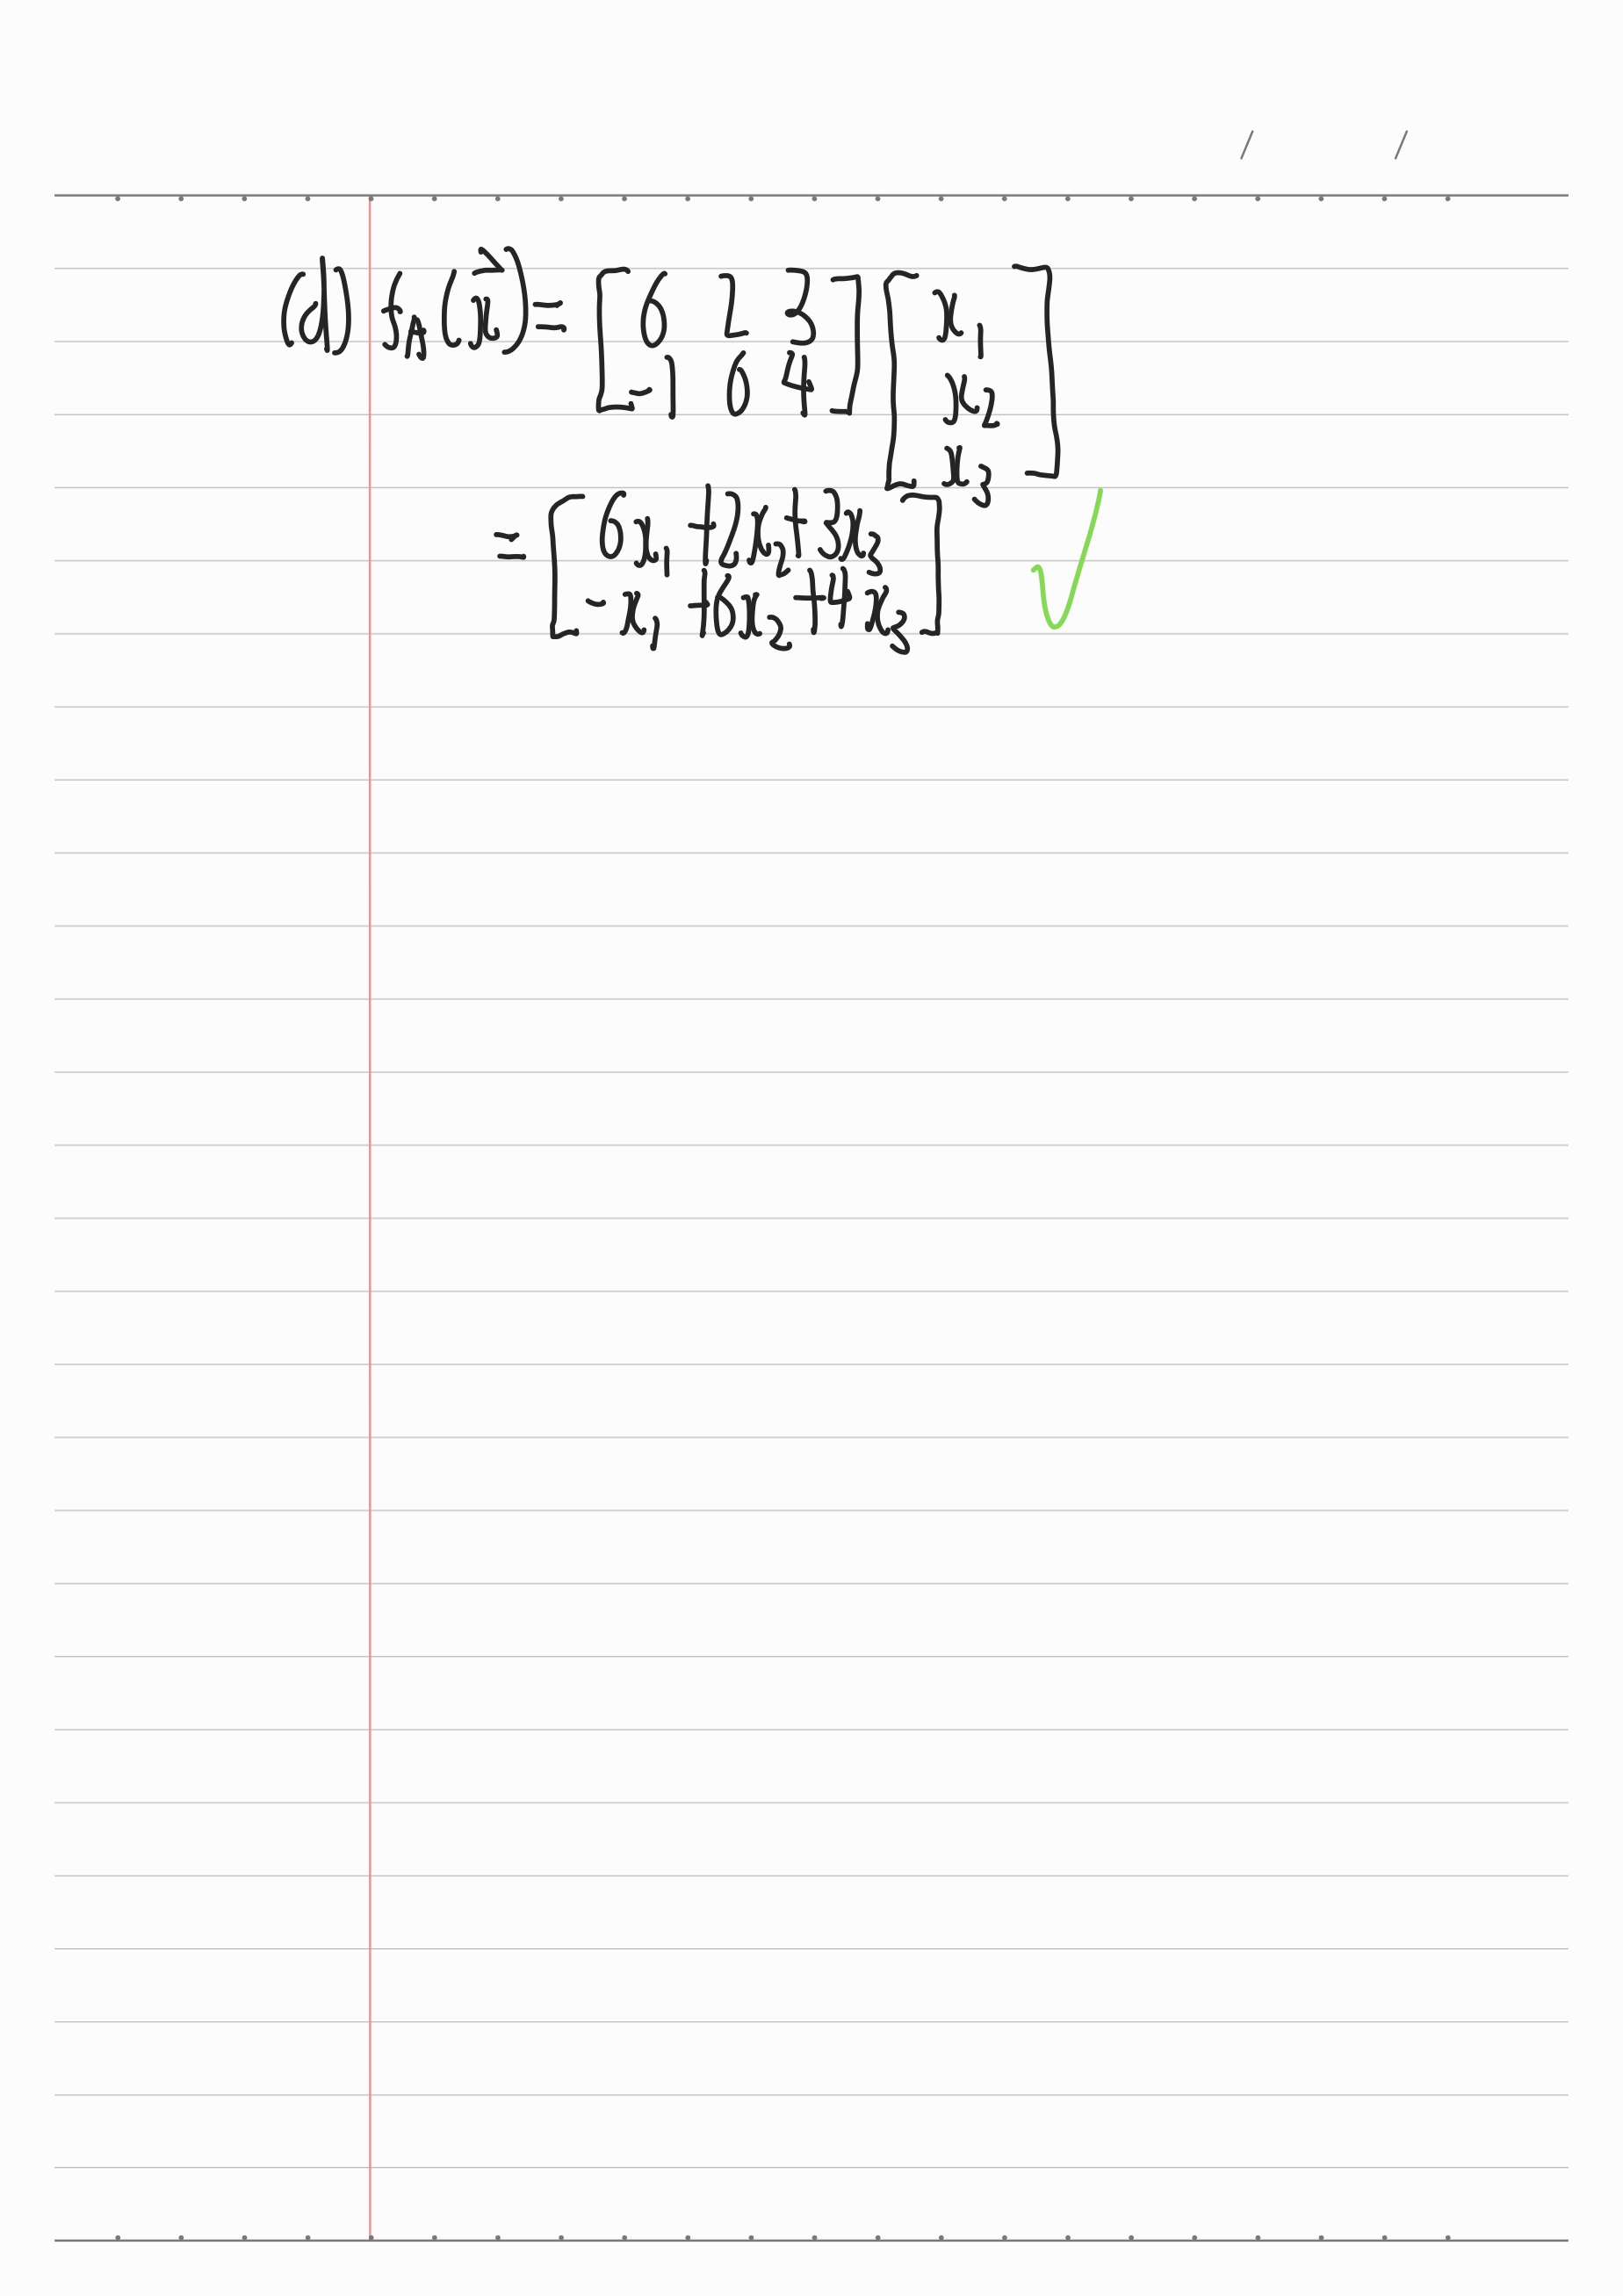 / /
(d) f_A(x⃗) = [6 2 3; -1 6 4] [x₁; x₂; x₃]
= [6x₁ + 2x₂ + 3x₃; -x₁ + 6x₂ + 4x₃] ✓